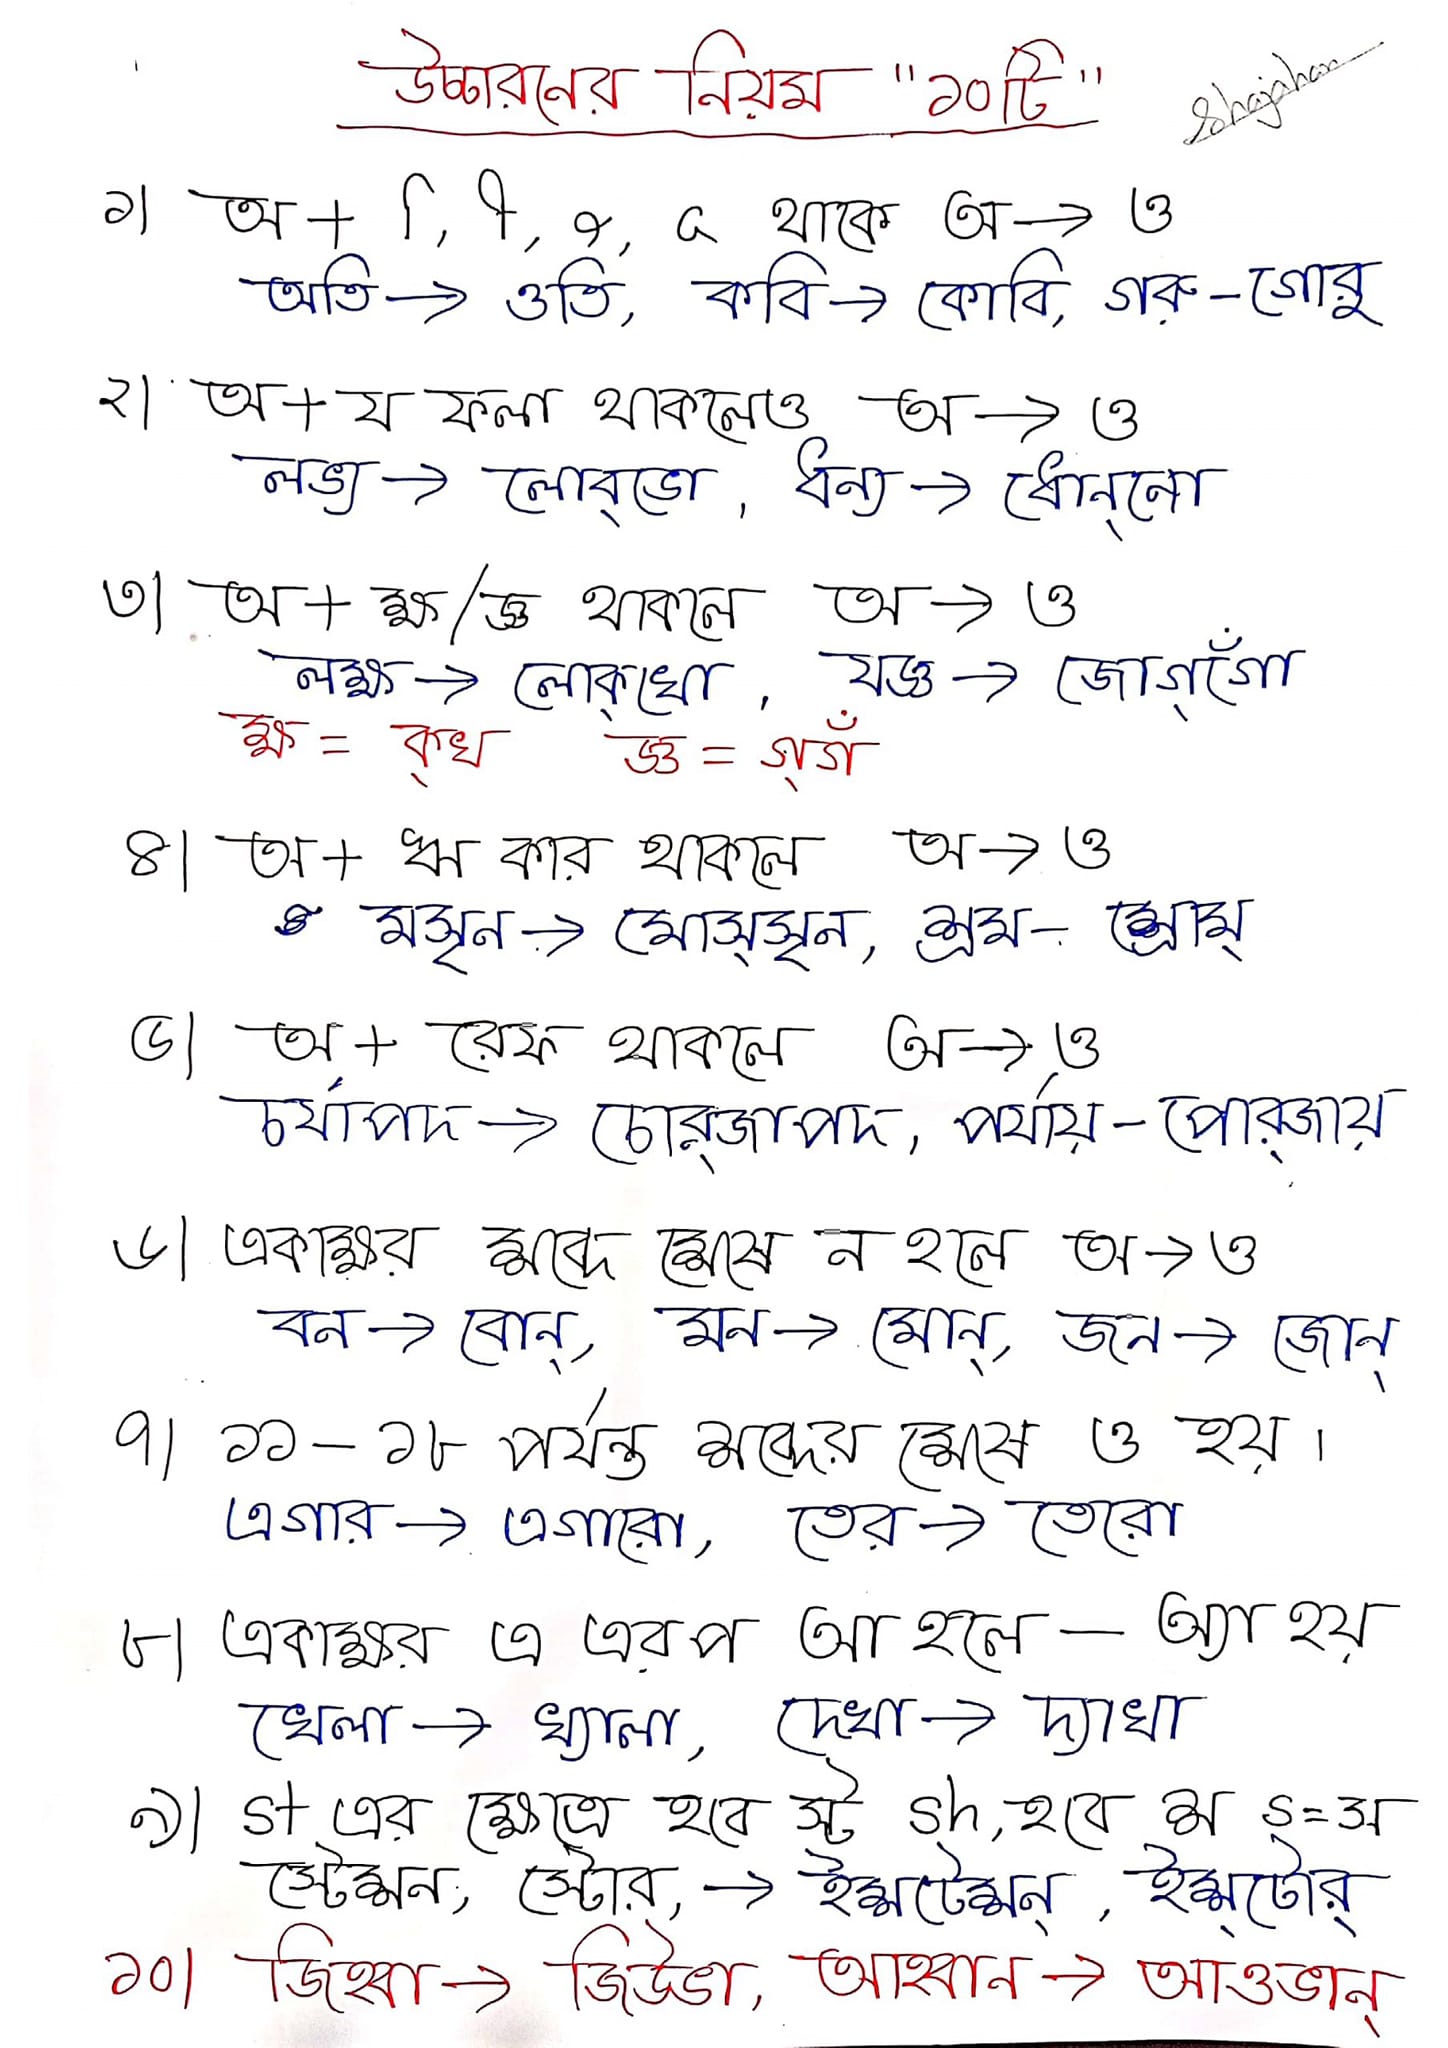 উচ্চারনের নিয়ম "১০টি"
Shajahan
১। অ + ি, ী, ু, ূ থাকে অ → ও
অতি → ওতি, কবি → কোবি, গরু - গোরু
২। অ + য ফলা থাকলেও অ → ও
লভ্য → লোব্ভো, ধন্য → ধোন্নো
৩। অ + ক্ষ/জ্ঞ থাকলে অ → ও
লক্ষ → লোক্খো, যজ্ঞ → জোগ্গোঁ
ক্ষ = ক্খ জ্ঞ = গ্গঁ
৪। অ + ঋ কার থাকলে অ → ও
মসৃন → মোস্সৃন, শ্রম - শ্রোম্
৫। অ + রেফ থাকলে অ → ও
চর্যাপদ → চোর্জাপদ, পর্যায় - পোর্জায়
৬। একাক্ষর শব্দে শেষে ন হলে অ → ও
বন → বোন্, মন → মোন্, জন → জোন্
৭। ১১ - ১৮ পর্যন্ত শব্দের শেষে ও হয়।
এগার → এগারো, তের → তেরো
৮। একাক্ষর এ এরপ আ হলে — অ্যা হয়
খেলা → খ্যালা, দেখা → দ্যাখা
৯। st এর ক্ষেত্রে হবে স্ট sh, হবে শ s=স
স্টেশন, স্টোর, → ইশ্টেশন্, ইশ্টোর্
১০। জিহ্বা → জিউভা, আহ্বান → আওভান্